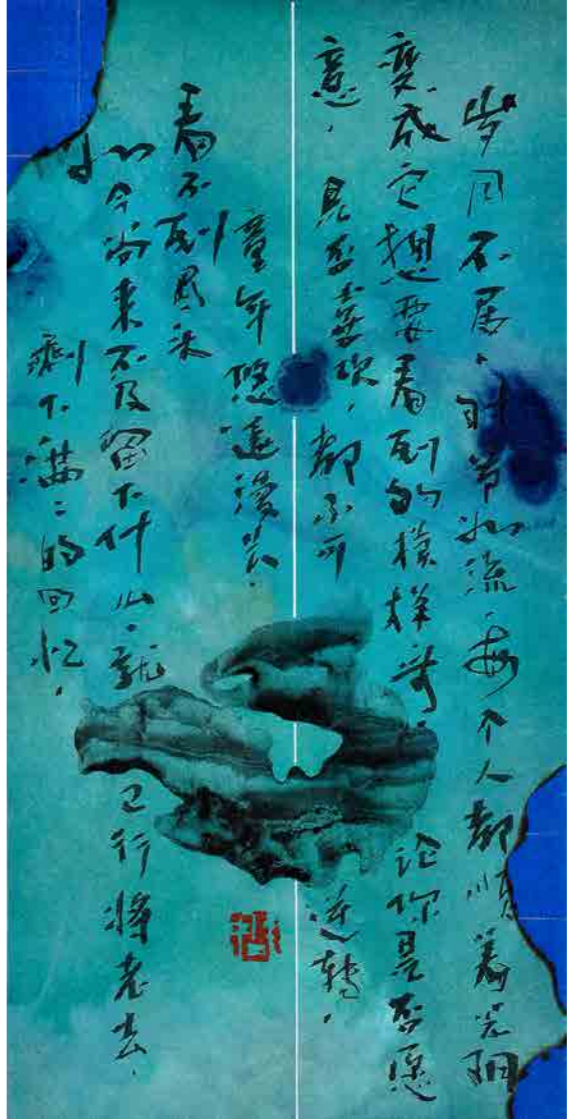 岁月不居，时节如流，每个人都顺着光阴
变成它想要看到的模样，论你是否愿
意，是否喜欢，都不可逆转，
童年悠远漫长，
看不到尽头
如今尚来不及留下什么，就已行将老去，
剩下满〻的回忆，